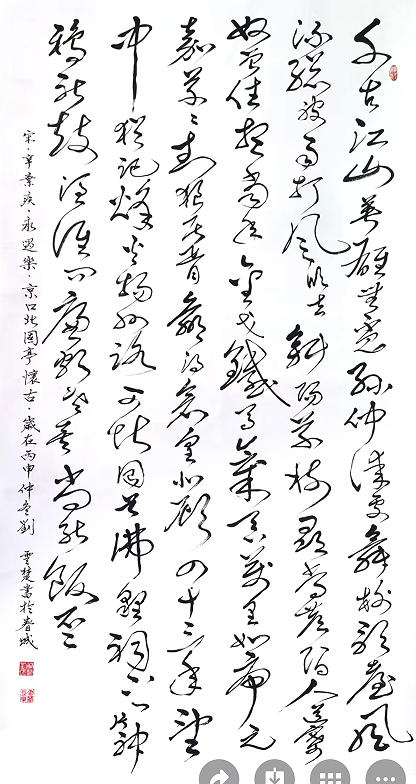 千古江山英雄無覓孫仲謀處舞榭歌臺風
流總被雨打風吹去斜陽草樹尋常巷陌人道寄
奴曾住想當年金戈鐵馬氣吞萬里如虎元
嘉草〻封狼居胥贏得倉皇北顧四十三年望
中猶記烽火揚州路可堪回首佛貍祠下一片神
鴉社鼓憑誰問廉頗老矣尚能飯否
宋·辛棄疾·永遇樂·京口北固亭懷古·歲在丙申仲冬劉書於春城